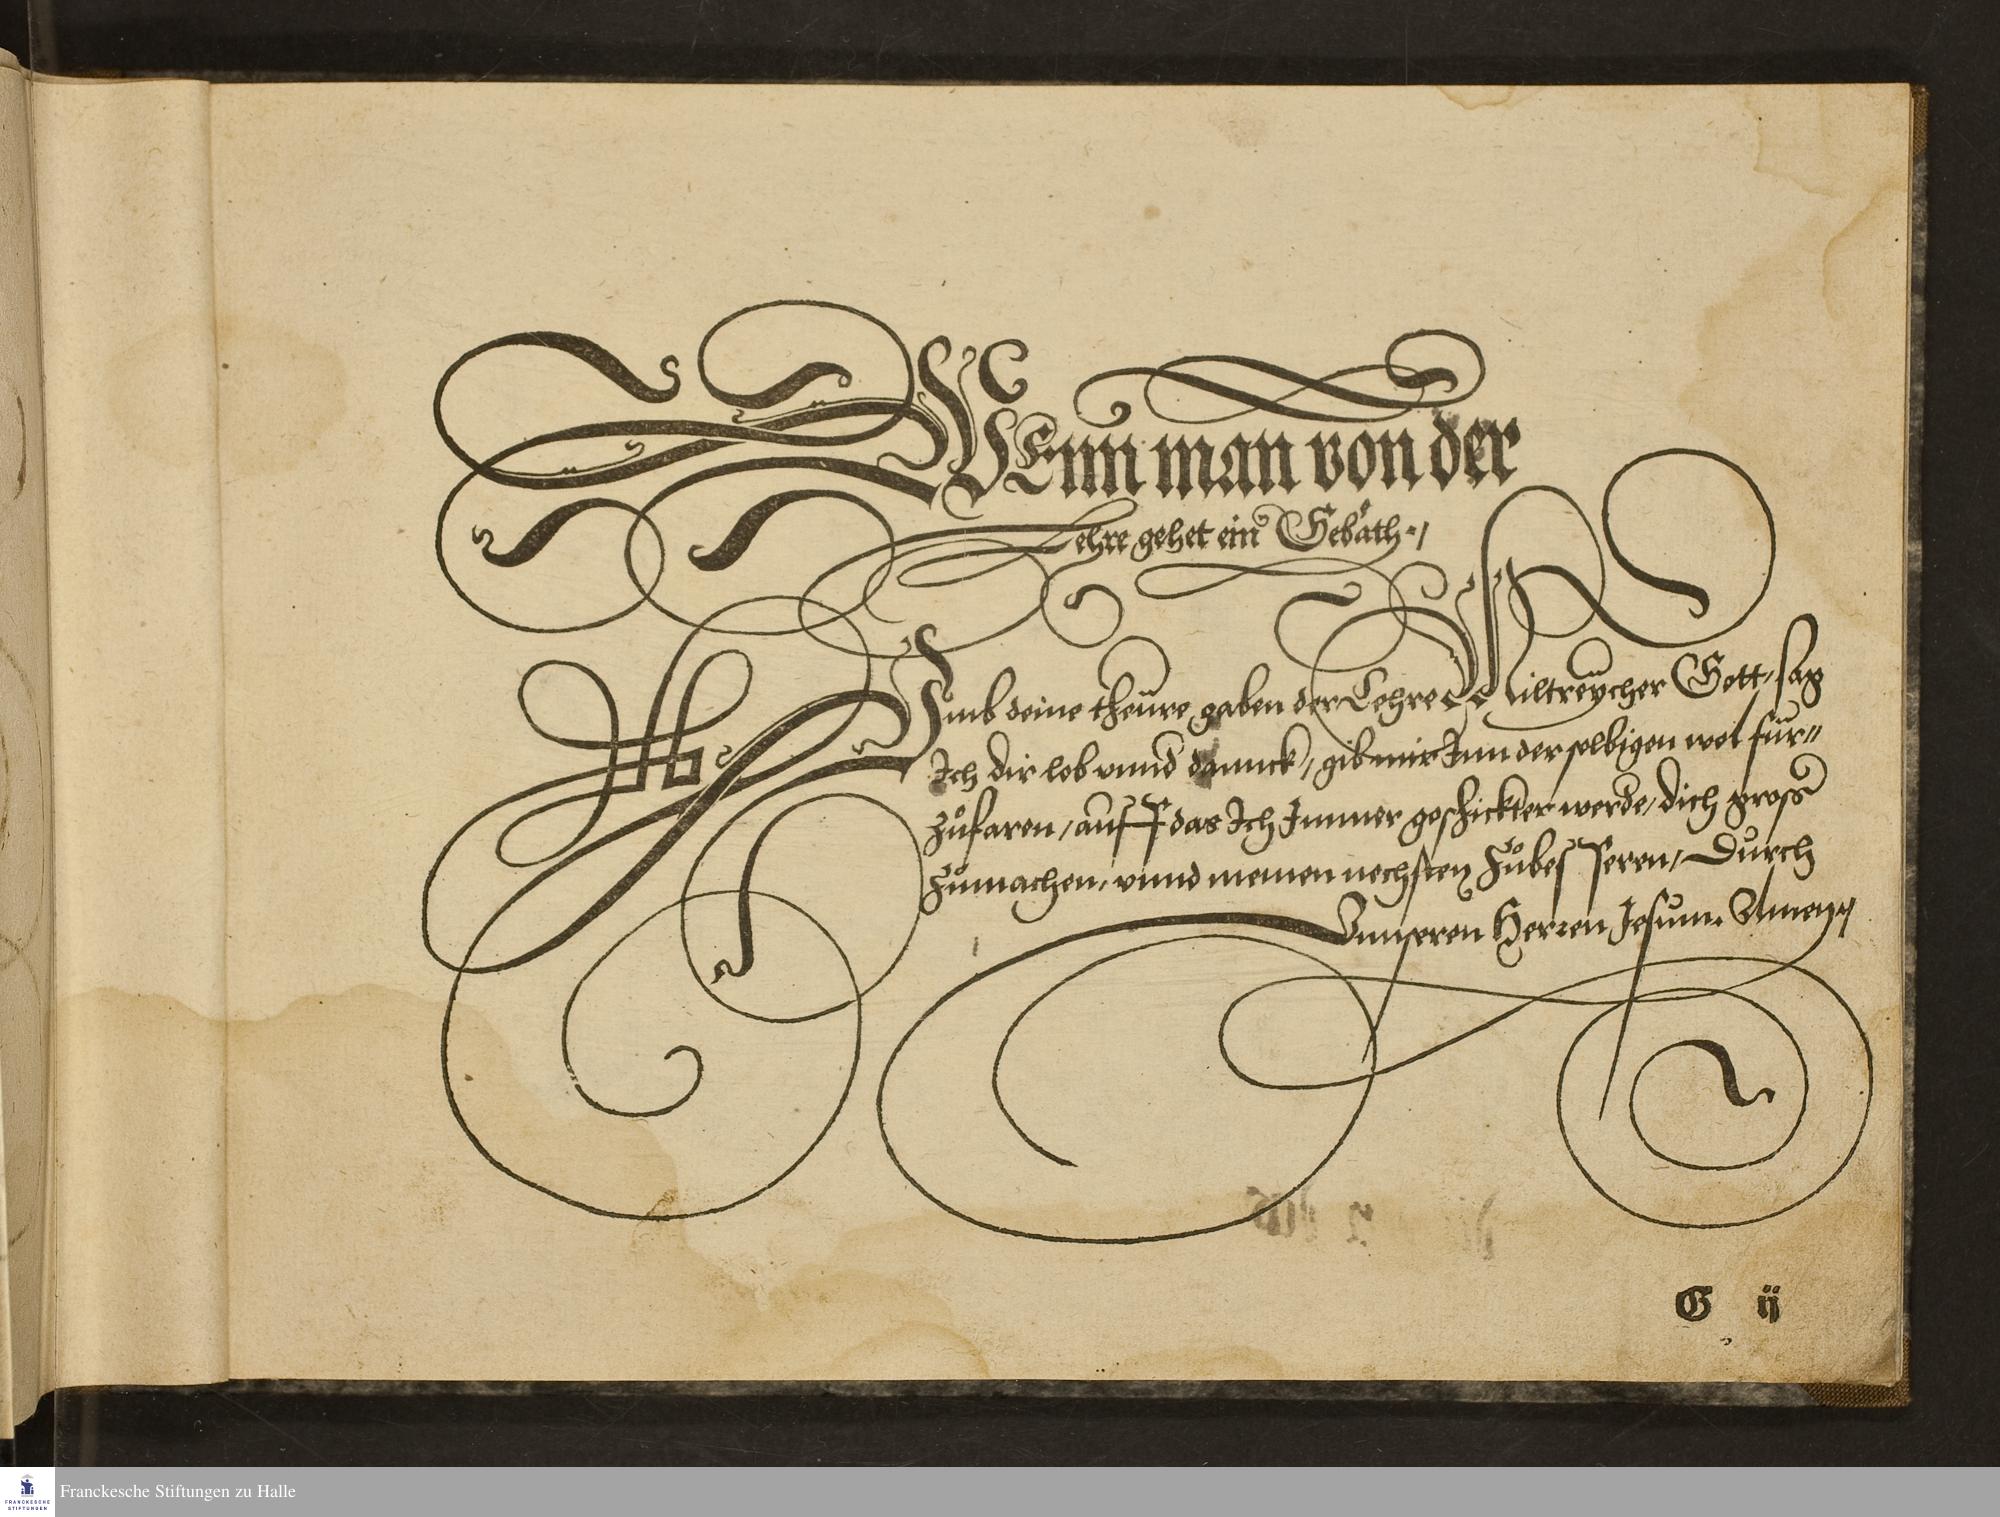 WEnn man von der
Lehre gehet ein Gebåth /
Vmb deine theüre gaben der Lehre Miltreÿcher Gott / sag
Ich dir lob vnnd dannck / gib mir Inn derselbigen wol für=
zůfaren / auff das Ich Immer geschickter werde / dich gross
zůmachen / vnnd meinen nechsten zůbesseren / Durch
Vnnseren Herren Jesum. Amen
G ij
Franckesche Stiftungen zu Halle
FRANCKESCHE
STIFTUNGEN